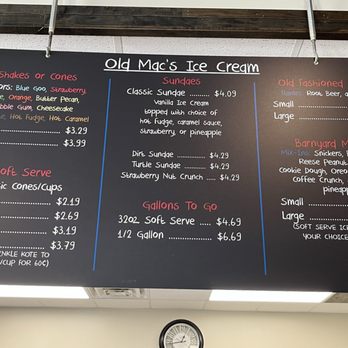 Old Mac's Ice Cream
Shakes or Cones
ors: Blue Goo, Strawberry,
Orange, Butter Pecan,
bble Gum, Cheesecake
Hot Fudge, Hot Caramel
$3.29
$3.99
oft Serve
ic Cones/Cups
$2.19
$2.69
$3.19
$3.79
NKLE KOTE TO
/CUP FOR 60¢)
Sundaes
Classic Sundae ........... $4.09
Vanilla Ice Cream
topped with choice of
hot fudge, caramel sauce,
strawberry, or pineapple
Dirt Sundae ................ $4.29
Turtle Sundae ............. $4.29
Strawberry Nut Crunch .... $4.29
Gallons To Go
32oz Soft Serve ..... $4.69
1/2 Gallon ................ $6.69
Old Fashioned
Root Beer,
Small
Large
Barnyard M
Mix-Ins: Snickers,
Reese Peanut
Cookie Dough, Oreo
Coffee Crunch,
pineapp
Small
Large
(SOFT SERVE IC
YOUR CHOICE